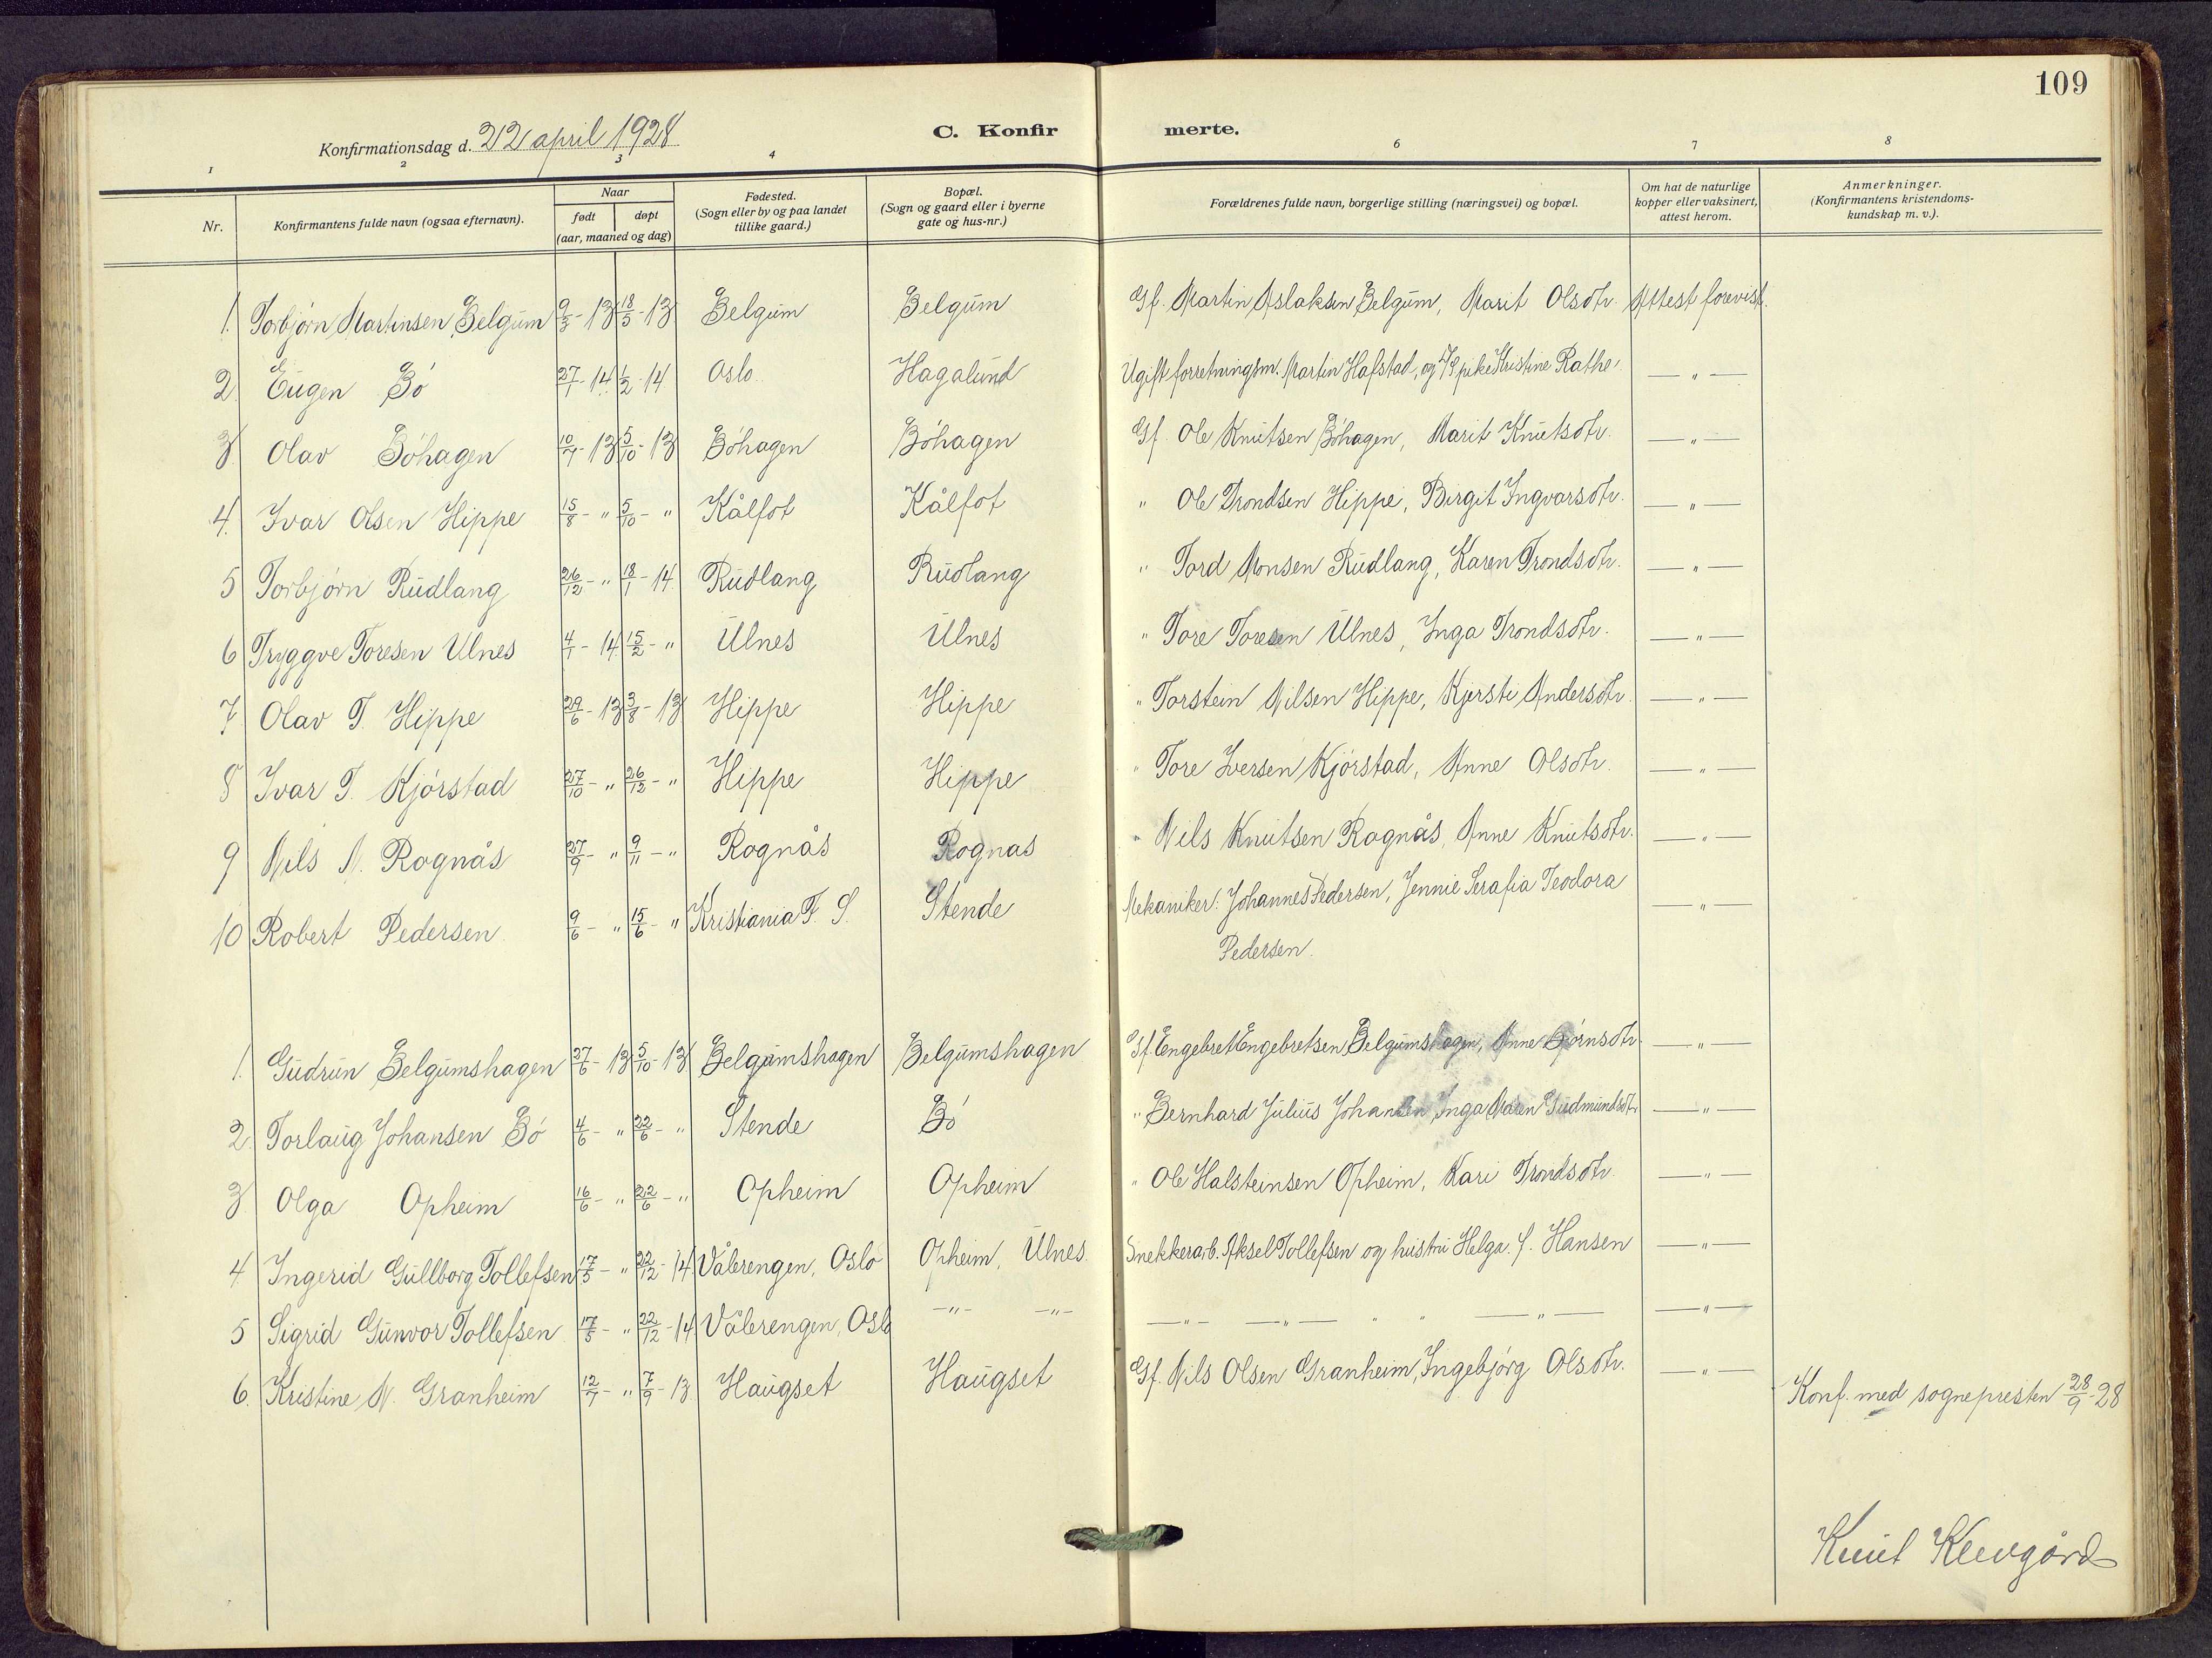 109
Konfirmationsdag d. 22 april 1928
C. Konfir merte.
1 2 3 4 6 7 8
Nr. Konfirmantens fulde navn (ogsaa efternavn). Naar født døpt (aar, maaned og dag) Fødested. (Sogn eller by og paa landet tillike gaard.) Bopæl. (Sogn og gaard eller i byerne gate og hus-nr.) Forældrenes fulde navn, borgerlige stilling (næringsvei) og bopæl. Om hat de naturlige kopper eller vaksinert, attest herom. Anmerkninger. (Konfirmantens kristendoms-kundskap m. v.).
1. Torbjørn Martinsen Belgum 9/3-13 18/5-13 Belgum Belgum Gf. Martin Aslaksen Belgum, Marit Olsdtr. Attest forevist.
2. Eugen Bö 27/1-14 1/2-14 Oslo Hagalund Ugift forretningsm. Martin Hafstad, og pike Kristine Rathe. — " —
3. Olav Böhagen 10/7-13 5/10-13 Böhagen Böhagen Gf. Ole Knutsen Böhagen, Marit Knutsdtr. — " —
4. Ivar Olsen Hippe 15/8-" 5/10-" Kålfot Kålfot " Ole Trondsen Hippe, Birgit Ingvarsdtr. — " —
5 Torbjørn Rudlang 26/12-" 18/1-14 Rudlang Rudlang " Tord Monsen Rudlang, Karen Trondsdtr. — " —
6 Tryggve Toresen Ulnes 4/1-14 15/2-" Ulnes Ulnes " Tore Toresen Ulnes, Inga Trondsdtr. — " —
7 Olav T. Hippe 29/6-13 3/8-13 Hippe Hippe " Torstein Nilsen Hippe, Kjersti Andersdtr. — " —
8 Ivar T. Kjörstad 27/10-" 26/12-" Hippe Hippe " Tore Iversen Kjörstad, Anne Olsdtr. — " —
9 Nils N. Rognås 27/9-" 9/11-" Rognås Rognas " Nils Knutsen Rognås, Anne Knutsdtr. — " —
10 Robert Pedersen 9/6-" 15/6-" Kristiania F. S. Stende Mekaniker: Johannes Pedersen, Jennie Serafia Teodora — " —
Pedersen.
1. Gudrun Belgumshagen 27/6-13 5/10-13 Belgumshagen Belgumshagen Gf. Engebret Engebretsen Belgumshagen, Anne Björnsdtr. — " —
2. Torlaug Johansen Bö 4/6-" 22/6-" Stende Bö " Bernhard Julius Johansen, Inga Maren Gudmundsdtr. — " —
3. Olga Opheim 16/6-" 22/6-" Opheim Opheim " Ole Halsteinsen Opheim, Kari Trondsdtr. — " —
4 Ingerid Gullborg Tollefsen 17/5-" 22/12-14 Vålerengen, Oslo Opheim, Ulnes. Snekkerarb. Aksel Tollefsen og hustru Helga f. Hansen — " —
5 Sigrid Gunvor Tollefsen 17/5-" 22/12-14 Vålerengen, Oslo -"- -"- —"— —"— " " —"— — " —
6. Kristine N. Granheim 12/7-" 7/9-13. Haugset Haugset Gf. Nils Olsen Granheim, Ingebjörg Olsdtr. — " — Konf. med sognepresten 28/9-28
Knut Klevgård